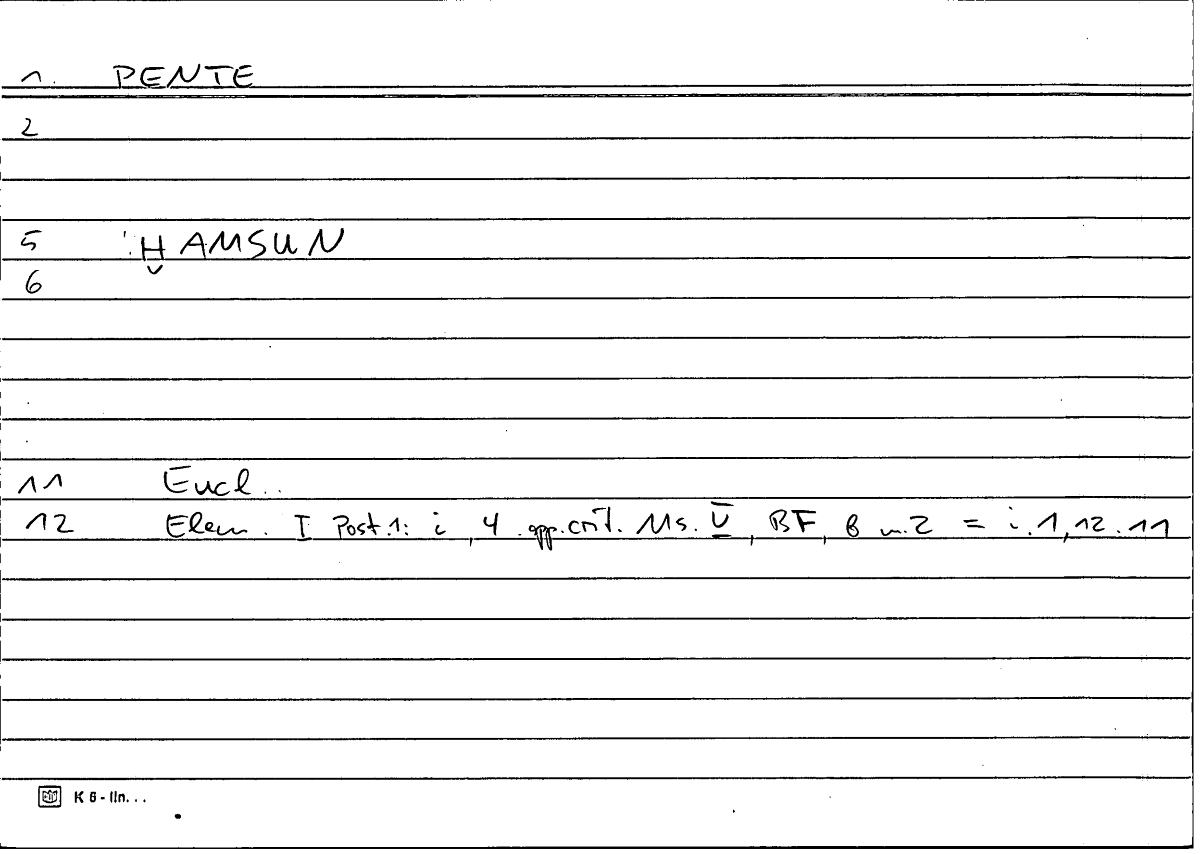 1. PENTE
2
5 ʿḪAMSUN
6
11 Eucl.
12 Elem. I Post.1: i, 4 app.crit. Ms. U, BF, B m.2 = i.1,12.11
K 6 - lin...